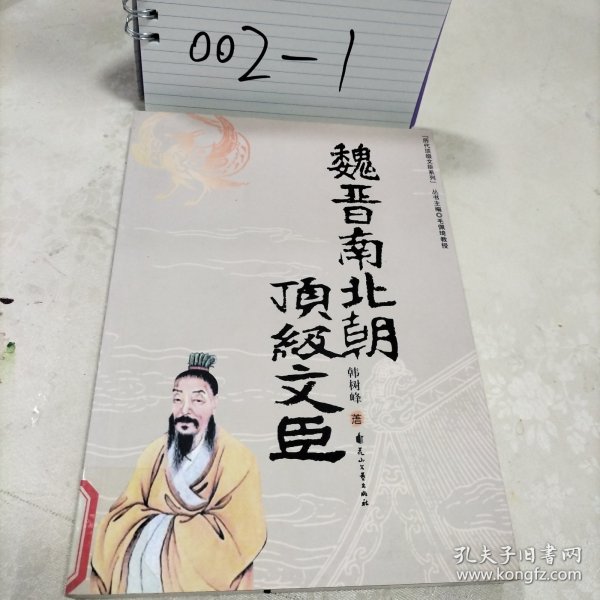 002-1
「历代顶级文臣系列」 丛书主编◎毛佩琦教授
魏晋南北朝
頂級文臣
韩树峰 著
花山文艺出版社
孔夫子旧书网
www.kongfz.com